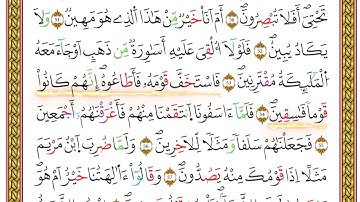 تَحْتِىٓ ۖ أَفَلَا تُبْصِرُونَ ٥١ أَمْ أَنَا۠ خَيْرٌ مِّنْ هَٰذَا ٱلَّذِى هُوَ مَهِينٌ وَلَا
يَكَادُ يُبِينُ ٥٢ فَلَوْلَآ أُلْقِىَ عَلَيْهِ أَسْوِرَةٌ مِّن ذَهَبٍ أَوْ جَآءَ مَعَهُ
ٱلْمَلَٰٓئِكَةُ مُقْتَرِنِينَ ٥٣ فَٱسْتَخَفَّ قَوْمَهُۥ فَأَطَاعُوهُ ۚ إِنَّهُمْ كَانُوا۟
قَوْمًا فَٰسِقِينَ ٥٤ فَلَمَّآ ءَاسَفُونَا ٱنتَقَمْنَا مِنْهُمْ فَأَغْرَقْنَٰهُمْ أَجْمَعِينَ ٥٥
فَجَعَلْنَٰهُمْ سَلَفًا وَمَثَلًا لِّلْءَاخِرِينَ ٥٦ وَلَمَّا ضُرِبَ ٱبْنُ مَرْيَمَ
مَثَلًا إِذَا قَوْمُكَ مِنْهُ يَصِدُّونَ ٥٧ وَقَالُوٓا۟ ءَأَٰلِهَتُنَا خَيْرٌ أَمْ هُوَ ۚ